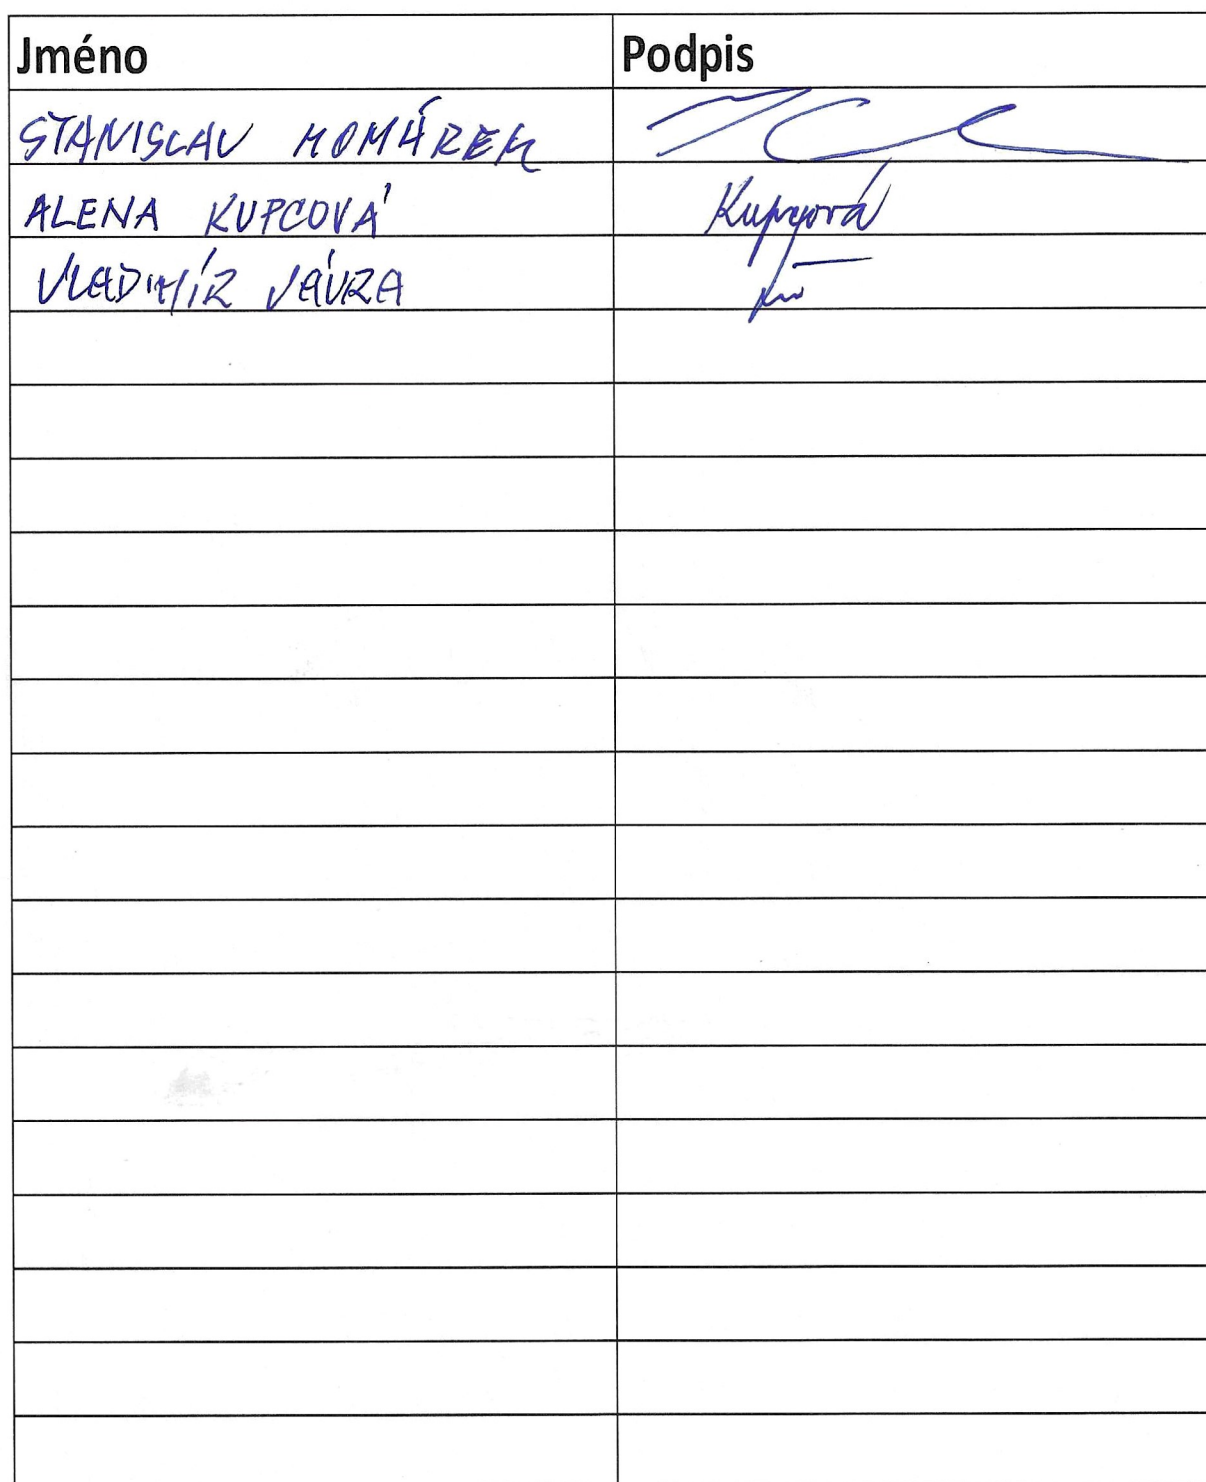 Jméno Podpis
STANISLAV KOMÁREK
ALENA KUPCOVÁ Kupcová
VLADIMÍR VÁVRA